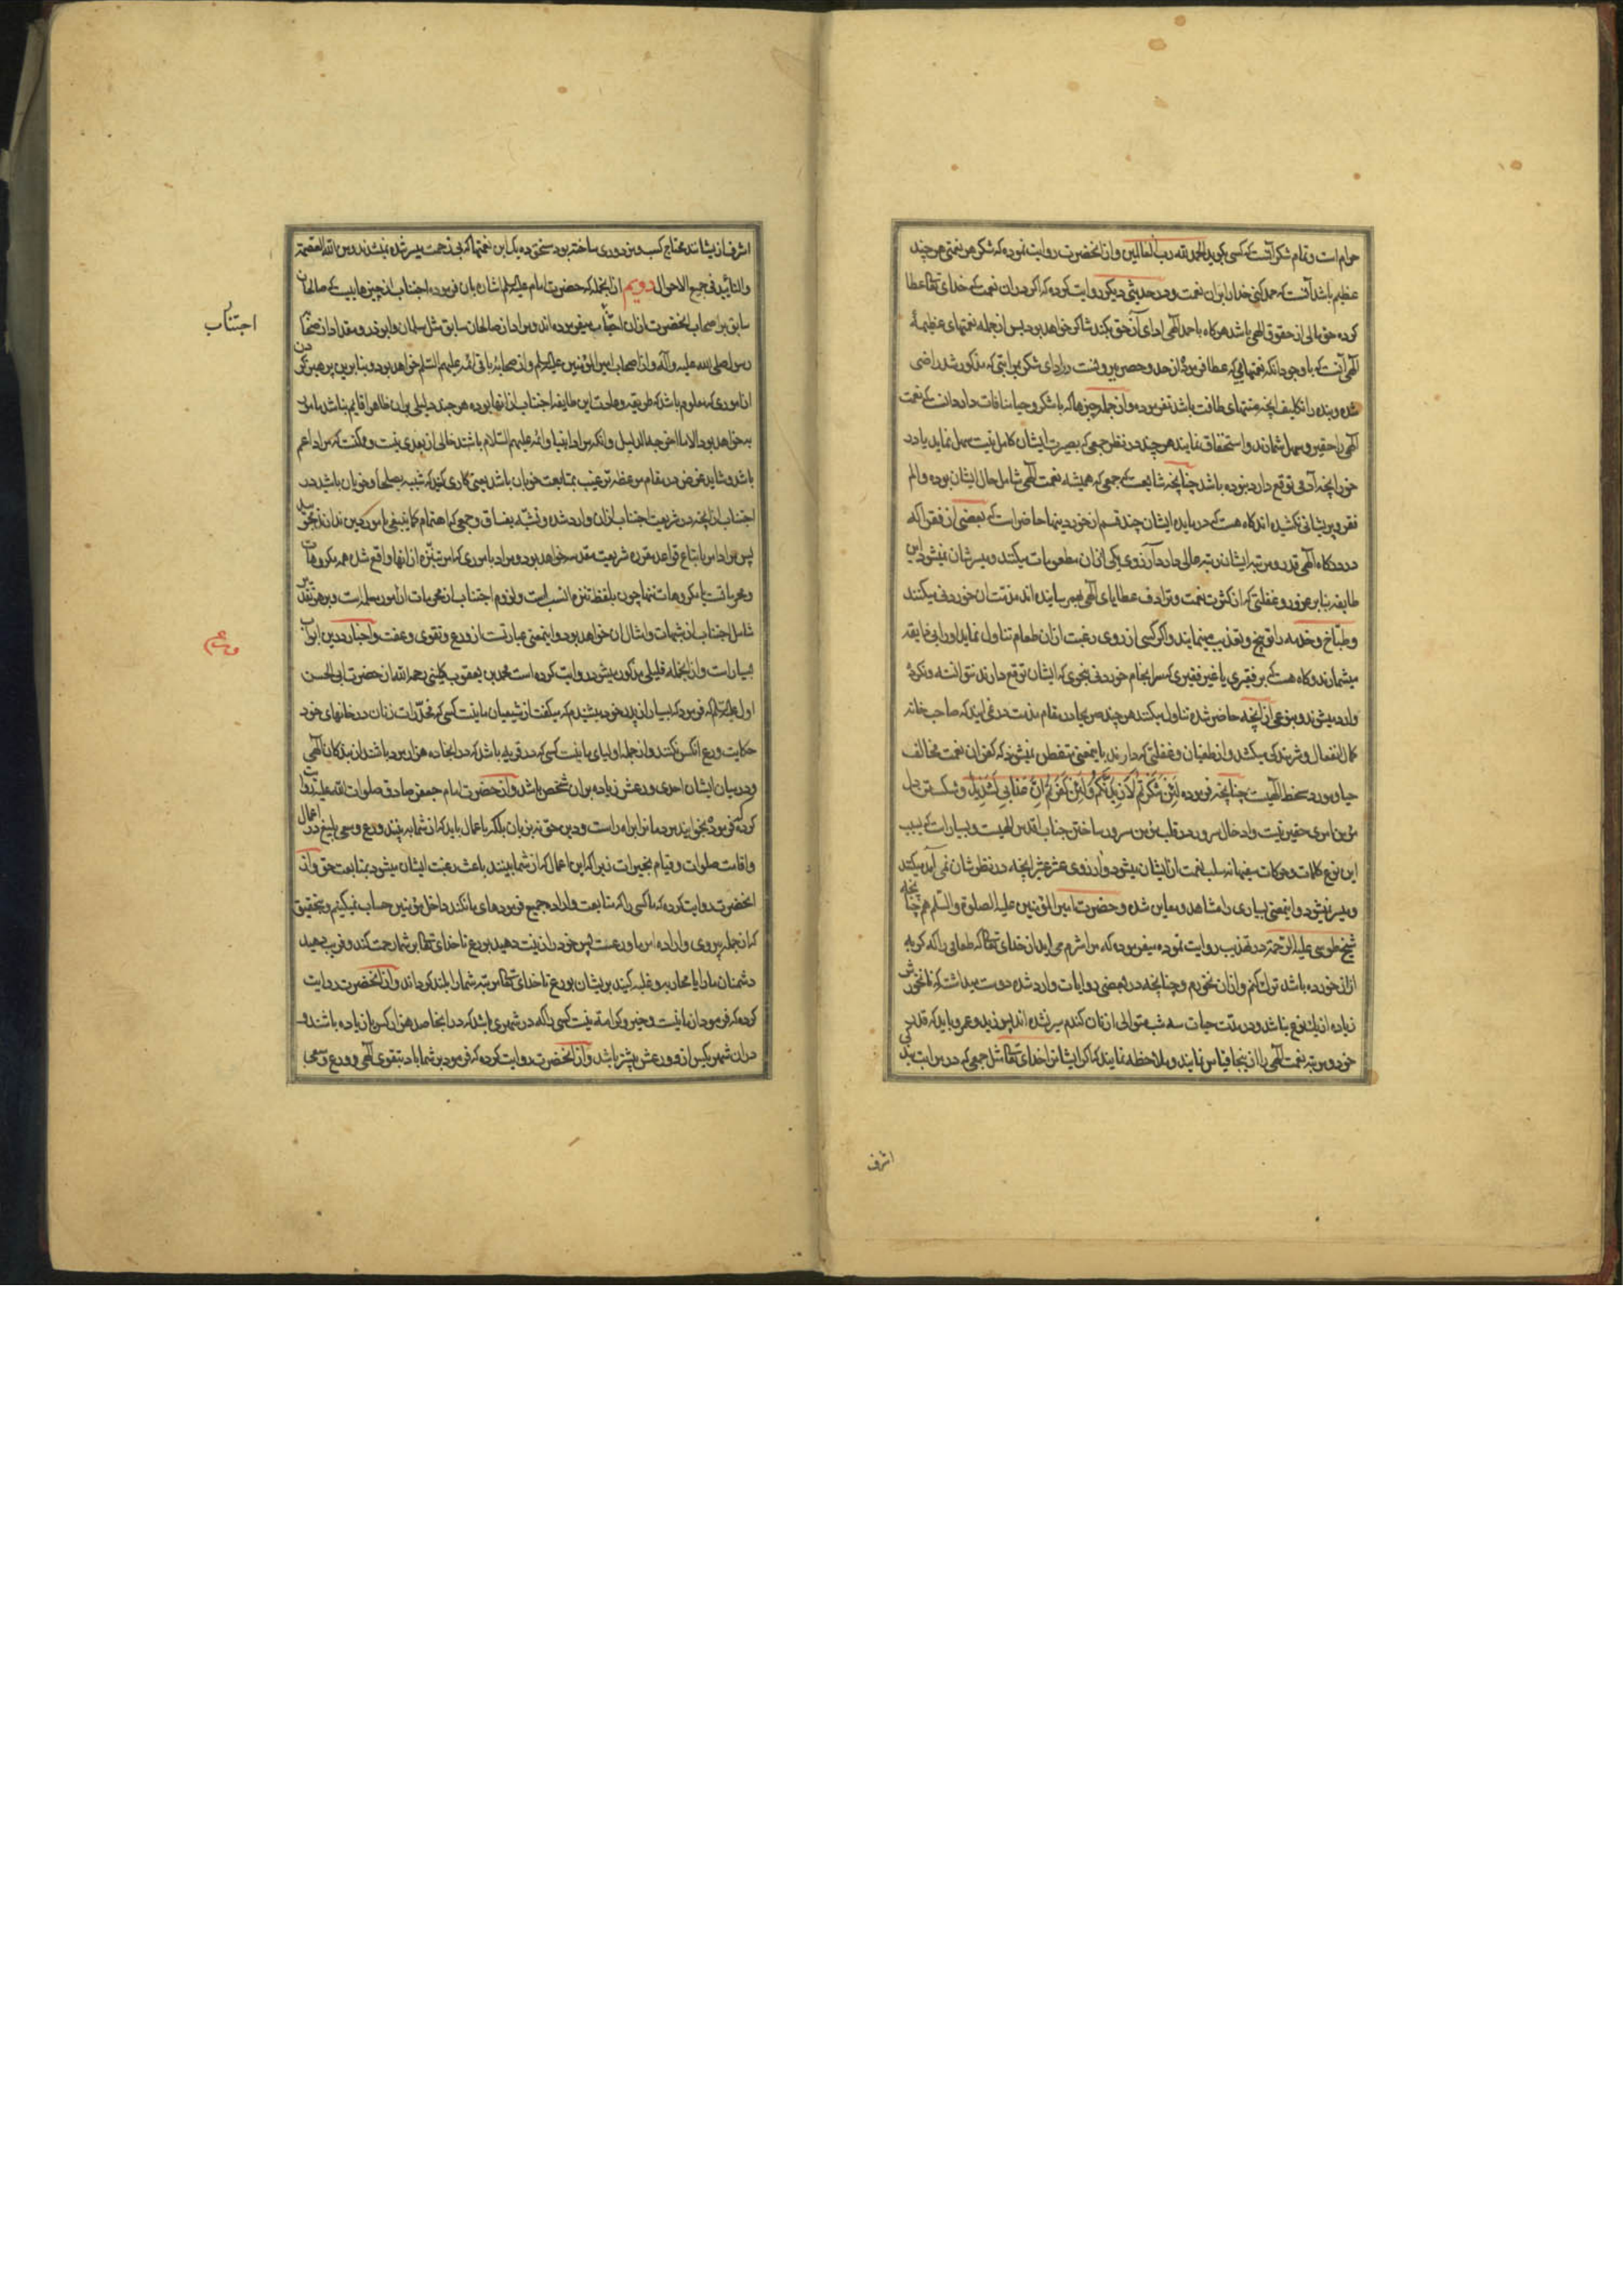 حرام است و تمام شکر آنست که کسی بگوید الحمد لله رب العالمین و از آنحضرت روایت نموده که شکر هر نعمتی هر چند
عظیم باشد آنست که حمد کنی خدا را بر آن نعمت و در حدیثی دیگر روایت کرده که اگر در آن نعمت که خدای تعالی عطا
کرده حق مالی از حقوق الهی باشد هرگاه با حمد الهی ادای آن حق بکند شاکر خواهد بود پس از جمله نعمتهای عظیمهٔ
الهی آنست که با وجود آنکه نعمتهایی که عطا فرموده از حد و حصر بیرونست در ادای شکر بمراتبی که مذکور شد راضی
شده و بنده را تکلیف آنچه منتهای طاقت باشد نفرموده و از جمله چیزها که با شکر و حیا منافات دارد آنست که نعمت
الهی را حقیر و سهل شمارند و استخفاف نمایند هر چند در نظر جمعی که بصیرت ایشان کامل نیست سهل نماید یا در
خور آنچه آدمی توقع دارد نبوده باشد چنانچه شایعست که جمعی که همیشه نعمت الهی شامل حال ایشان بوده و الم
فقر و پریشانی نکشیده‌اند گاه هست که در مایده ایشان چند قسم از خوردنیها حاضر است که بعضی از فقرا که
در درگاه الهی قدر و مرتبه ایشان رتبه عالی دارد آرزوی یکی از آن مطعومات میکنند و میسرشان نمیشود این
طایفه بنا بر غرور و غفلتی که از کثرت نعمت و ترادف عطایای الهی بهم رسانیده‌اند مذمت آن خوردنی میکنند
و طباخ و خدمه را توبیخ و تعذیب مینمایند و اگر کسی از روی رغبت از آن طعام تناول نماید او را بی ذایقه
میشمارند و گاه هست که بر فقیری یا غیر فقیری که سرانجام خوردنی بنحوی که ایشان توقع دارند نتوانسته و نکرده
وارد میشوند و بنوعی از آنچه حاضر شده تناول میکنند هر چند صریحا در مقام مذمت در نمی‌آیند که صاحب خانه
کمال انفعال و شرمندگی میکشد و از طغیان و غفلتی که دارند باین معنی متفطن نمیشوند که کفران نعمت مخالف
حیا و مورد سخط الهیست چنانچه فرموده لَئِن شَکَرتُم لَاَزیدَنَّکُم وَ لَئِن کَفَرتُم اِنَّ عَذابی لَشَدید و شکستن دل
مؤمن امری حقیر نیست و ادخال سرور در قلب مؤمن مسرور ساختن جناب اقدس الهیست و بسیار است که بسبب
این نوع کلمات و حرکات سفیهانه سلب نعمت از ایشان میشود و آرزوی عشر عشیر آنچه در نظرشان نمی‌آمد میکنند
و میسر نمیشود و اینمعنی بسیاری را مشاهد و معاین شده و حضرت امیر المؤمنین علیه الصلوة و السلم هم چنانچه
شیخ طوسی علیه الرحمة در تهذیب روایت نموده میفرموده که من شرم می‌آید از خدای تعالی که طعامی را که گربه
از آن خورده باشد ترک کنم و از آن نخورم و چنانچه در بعضی روایات وارد شده دوست میداشت که نانخورش
زیاده از یک نوع نباشد و در مدت حیات سه شب متوالی از نان گندم سیر نشده‌اند پس زید و عمرو باید که قدر
خود و مرتبه نعمت الهی را از اینجا قیاس نمایند و ملاحظه نمایند که اگر ایشانرا خدای تعالی مثل جمعی که در مراتب بندگی
اشرف
اشرف از ایشانند محتاج کسب و مزدوری ساخته بود مستحق ده یک این نعمتها که بی زحمت میسر شده نمیشدند و من الله العصمة
والتأیید فی جمیع الاحوال دویم از آنجمله که حضرت امام علیه السلام اشاره بآن فرموده اجتناب از چیزهاییست که صالحان
سابق بر اصحاب آنحضرت از آن اجتناب میفرموده‌اند و مراد از صالحان سابق مثل سلمان و ابوذر و مقداد از صحابه
رسول صلی الله علیه و آله و از اصحاب امیر المؤمنین علیه السلام و از صحابهٔ باقی ائمه علیهم السلام خواهد بود و بنابرین پرهیز کردن
از اموری که معلوم باشد که طریقه و عادت این طایفه اجتناب از آنها بوده هر چند دلیلی بر آن ظاهرا قایم نباشد مأمور
به خواهد بود الا ما اخرجه الدلیل و آنکه مراد انبیا و ائمه علیهم السلام باشند خالی از بعدی نیست و ممکنست که مراد اعم
باشد و شاید غرض در مقام موعظه ترغیب بمتابعت خوبان باشد یعنی کاری کنید که شبیه بصلحا و خوبان باشید در
اجتناب از آنچه در شریعت اجتناب از آن وارد شده و تشبه بفساق و جمعی که اهتمام کما ینبغی بامور دین ندارند نجویید
پس مراد امر باتباع قواعد مقرره شریعت مقدسه خواهد بود و مراد باموری که امر بتنزه از آنها واقع شده مکروهات
و محرماتست یا مکروهات تنها چون بلفظ تنزه انسب است و لزوم اجتناب از محرمات از امور مسلمه است و بر هر تقدیر
شامل اجتناب از شبهات و امثال آن خواهد بود و اینمعنی عبارتست از ورع و تقوی و عفت و اخبار در این ابواب
بسیار است و از آنجمله قلیلی مذکور میشود روایت کرده است محمد بن یعقوب کلینی رحمه الله از حضرت ابی الحسن
اول علیه السلام که فرمود که بسیار از پدر خود میشنیدم که میگفت از شیعیان ما نیست کسی که مخدرات زنان در خانهای خود
حکایت ورع آنکس نکنند و از جمله اولیای ما نیست کسی که در قریه باشد که در آنجا ده هزار مرد باشند از بندگان الهی
و در میان ایشان احدی ورعش زیاده بر آن شخص باشد و از حضرت امام جعفر صادق صلوات الله علیه روایت
کرده که فرموده بخوانید مردمانرا براه راست و دین حق نه بزبان بلکه باعمال باید که از شما به بینند ورع و سعی بلیغ در اعمال
و اقامت صلوات و قیام بخیرات زیرا که این اعمال که از شما ببینند باعث رغبت ایشان میشود بمتابعت حق و از
آنحضرت روایت کرده که ما کسی را که متابعت و اراده جمیع فرمودهای ما نکند داخل مؤمنین حساب نمیکنیم و بتحقیق
که از جمله پیروی و اراده امر ما ورعست پس خود را زینت دهید بورع تا خدای تعالی بر شما رحمت کند و فریب دهید
دشمنان ما را یا محاربه و غلبه کنید بر ایشان بورع تا خدای تعالی مرتبه شما را بلند گرداند و از آنحضرت روایت
کرده که فرمود از ما نیست و خیر و کرامت نیست کسی را که در شهری باشد که در آنجا صد هزار کس یا زیاده باشند و
در آن شهر یکس از و ورعش بیشتر باشد و از آنحضرت روایت کرده که فرمود بر شما باد بتقوی الهی و ورع و سعی
اجتناب
ورع